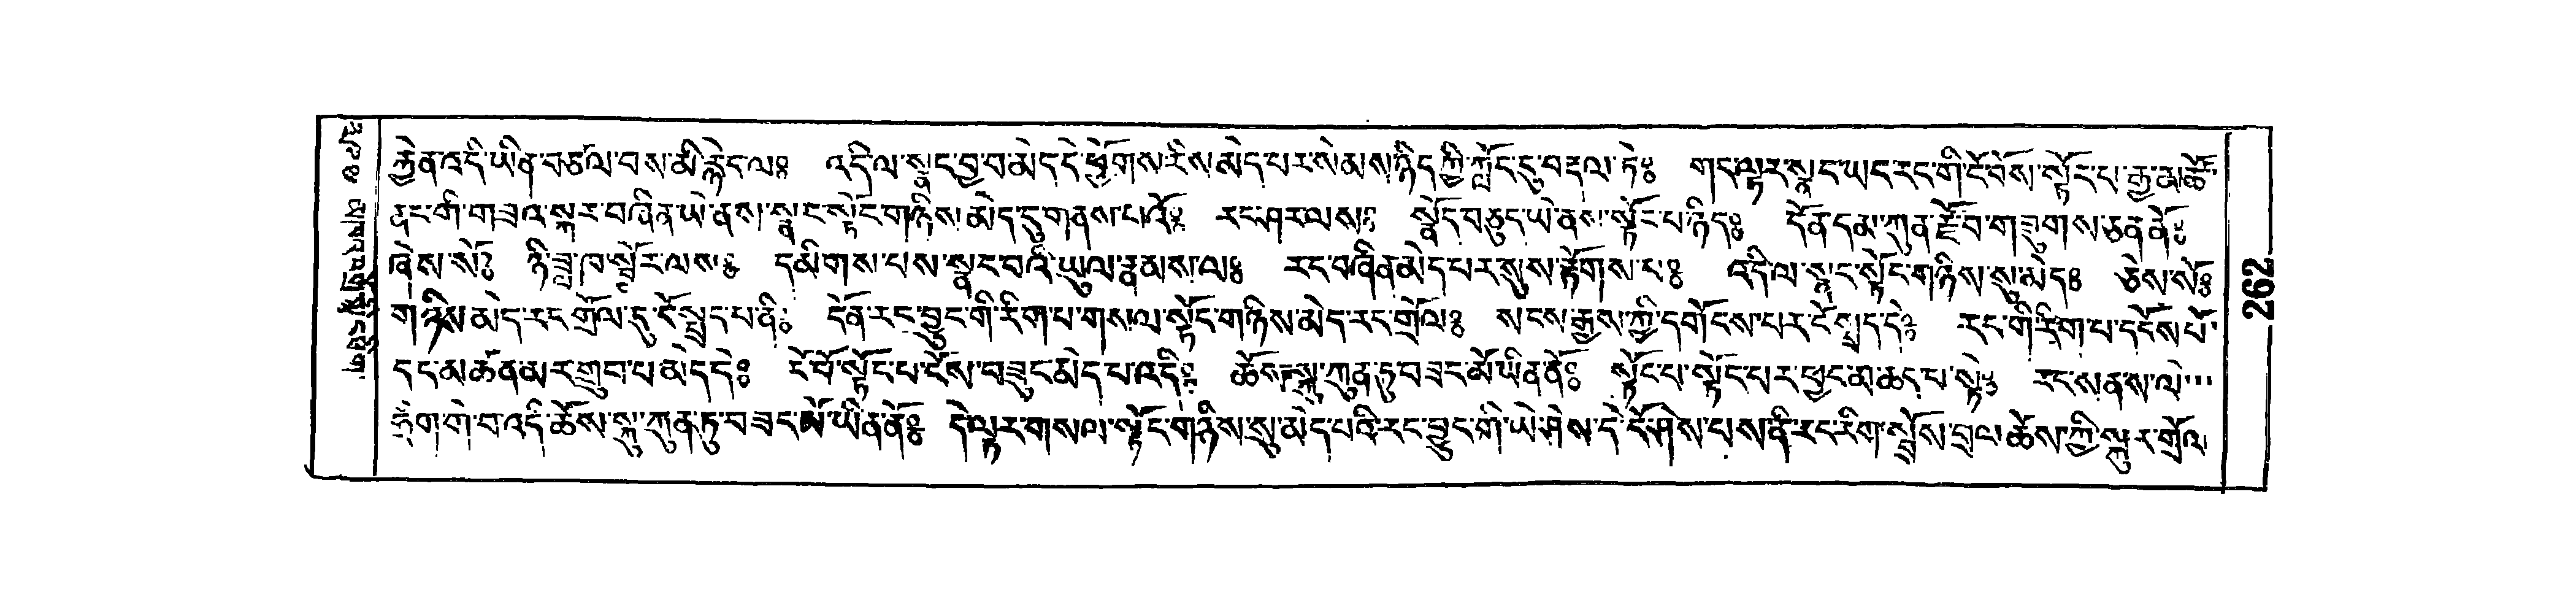 རྐྱེན་འདི་ཡིན་བཙལ་བས་མི་རྙེད་ལ༔ འདི་ལ་སྣང་བྱ་བ་མེད་དེ་ཕྱོགས་རིས་མེད་པར་སེམས་ཉིད་ཀྱི་ཀློང་དུ་བརྡལ་ཏེ༔ གང་ལྟར་སྣང་ཡང་རང་གི་ངོ་བོས་སྟོང་པ་རྒྱ་མཚོ་
ནང་གི་གཟའ་སྐར་བཞིན་ཡེ་ནས་སྣང་སྟོང་གཉིས་མེད་དུ་གནས་པའོ༔ རང་ཤར་ལས༔ སྣོད་བཅུད་ཡེ་ནས་སྟོང་པ་ཉིད༔ དོན་དམ་ཀུན་རྫོབ་གཟུགས་ཅན་ནོ༔
ཞེས་སོ༔ ཉི་ཟླ་ཁ་སྦྱོར་ལས༔ དམིགས་པས་སྣང་བའི་ཡུལ་རྣམས་ལ༔ རང་བཞིན་མེད་པར་སུས་རྟོགས་པ༔ འདི་ལ་སྣང་སྟོང་གཉིས་སུ་མེད༔ ཅེས་སོ༔
གཉིས་མེད་རང་གྲོལ་དུ་ངོ་སྤྲད་པ་ནི༔ དོན་རང་བྱུང་གི་རིག་པ་གསལ་སྟོང་གཉིས་མེད་རང་གྲོལ༔ སངས་རྒྱས་ཀྱི་དགོངས་པར་ངོ་སྤྲད་དེ༔ རང་གི་རིག་པ་དངོས་པོ་
དང་མཚན་མར་གྲུབ་པ་མེད་དེ༔ ངོ་བོ་སྟོང་པ་ངོས་བཟུང་མེད་པ་འདི༔ ཆོས་སྐུ་ཀུན་ཏུ་བཟང་མོ་ཡིན་ནོ༔ སྟོང་པ་སྟོང་པར་ཕྱང་མ་ཆད་པ་སྟེ༔ རང་ས་ནས་ལེ་
ཧྲིག་གེ་བ་འདི་ཆོས་སྐུ་ཀུན་ཏུ་བཟང་མོ་ཡིན་ནོ༔ དེ་ལྟར་གསལ་སྟོང་གཉིས་སུ་མེད་པའི་རང་བྱུང་གི་ཡེ་ཤེས་དེ་ངོ་ཤེས་པས་ནི་རང་རིག་སྤྲོས་བྲལ་ཆོས་ཀྱི་སྐུར་གྲོལ་